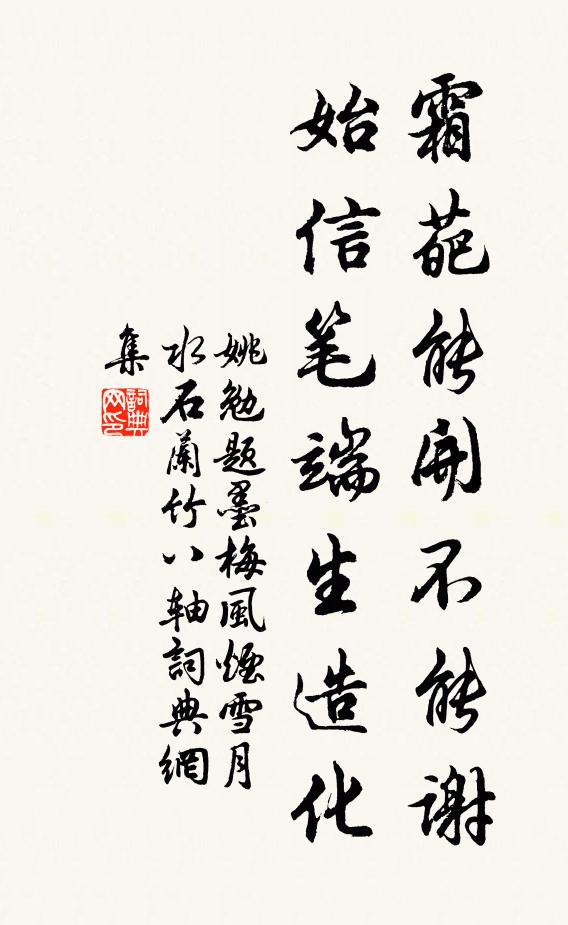 霜葩能開不能謝
始信笔端生造化
姚勉題墨梅風煙雪月
水石蘭竹八軸詞典網
集
詞典
网印